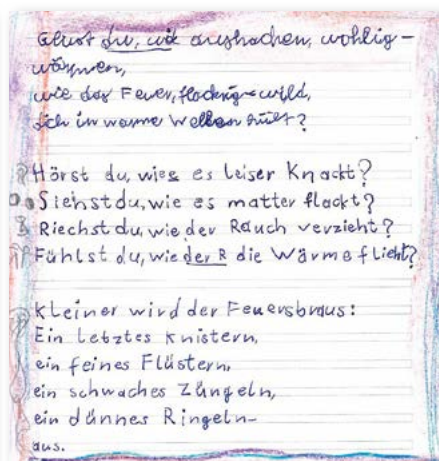 du, wie
wärmen,
wie das Feuer, flackrig-wild,
sich in warme Wellen hüllt?
Hörst du, wies es leiser Knackt?
Siehst du, wie es matter flackt?
Riechst du, wie der Rauch verzieht?
Fühlst du, wie der R die Wärme flieht?
Kleiner wird der Feuersbraus:
Ein letztes knistern,
ein feines Flüstern,
ein schwaches Züngeln,
ein dünnes Ringeln-
aus.